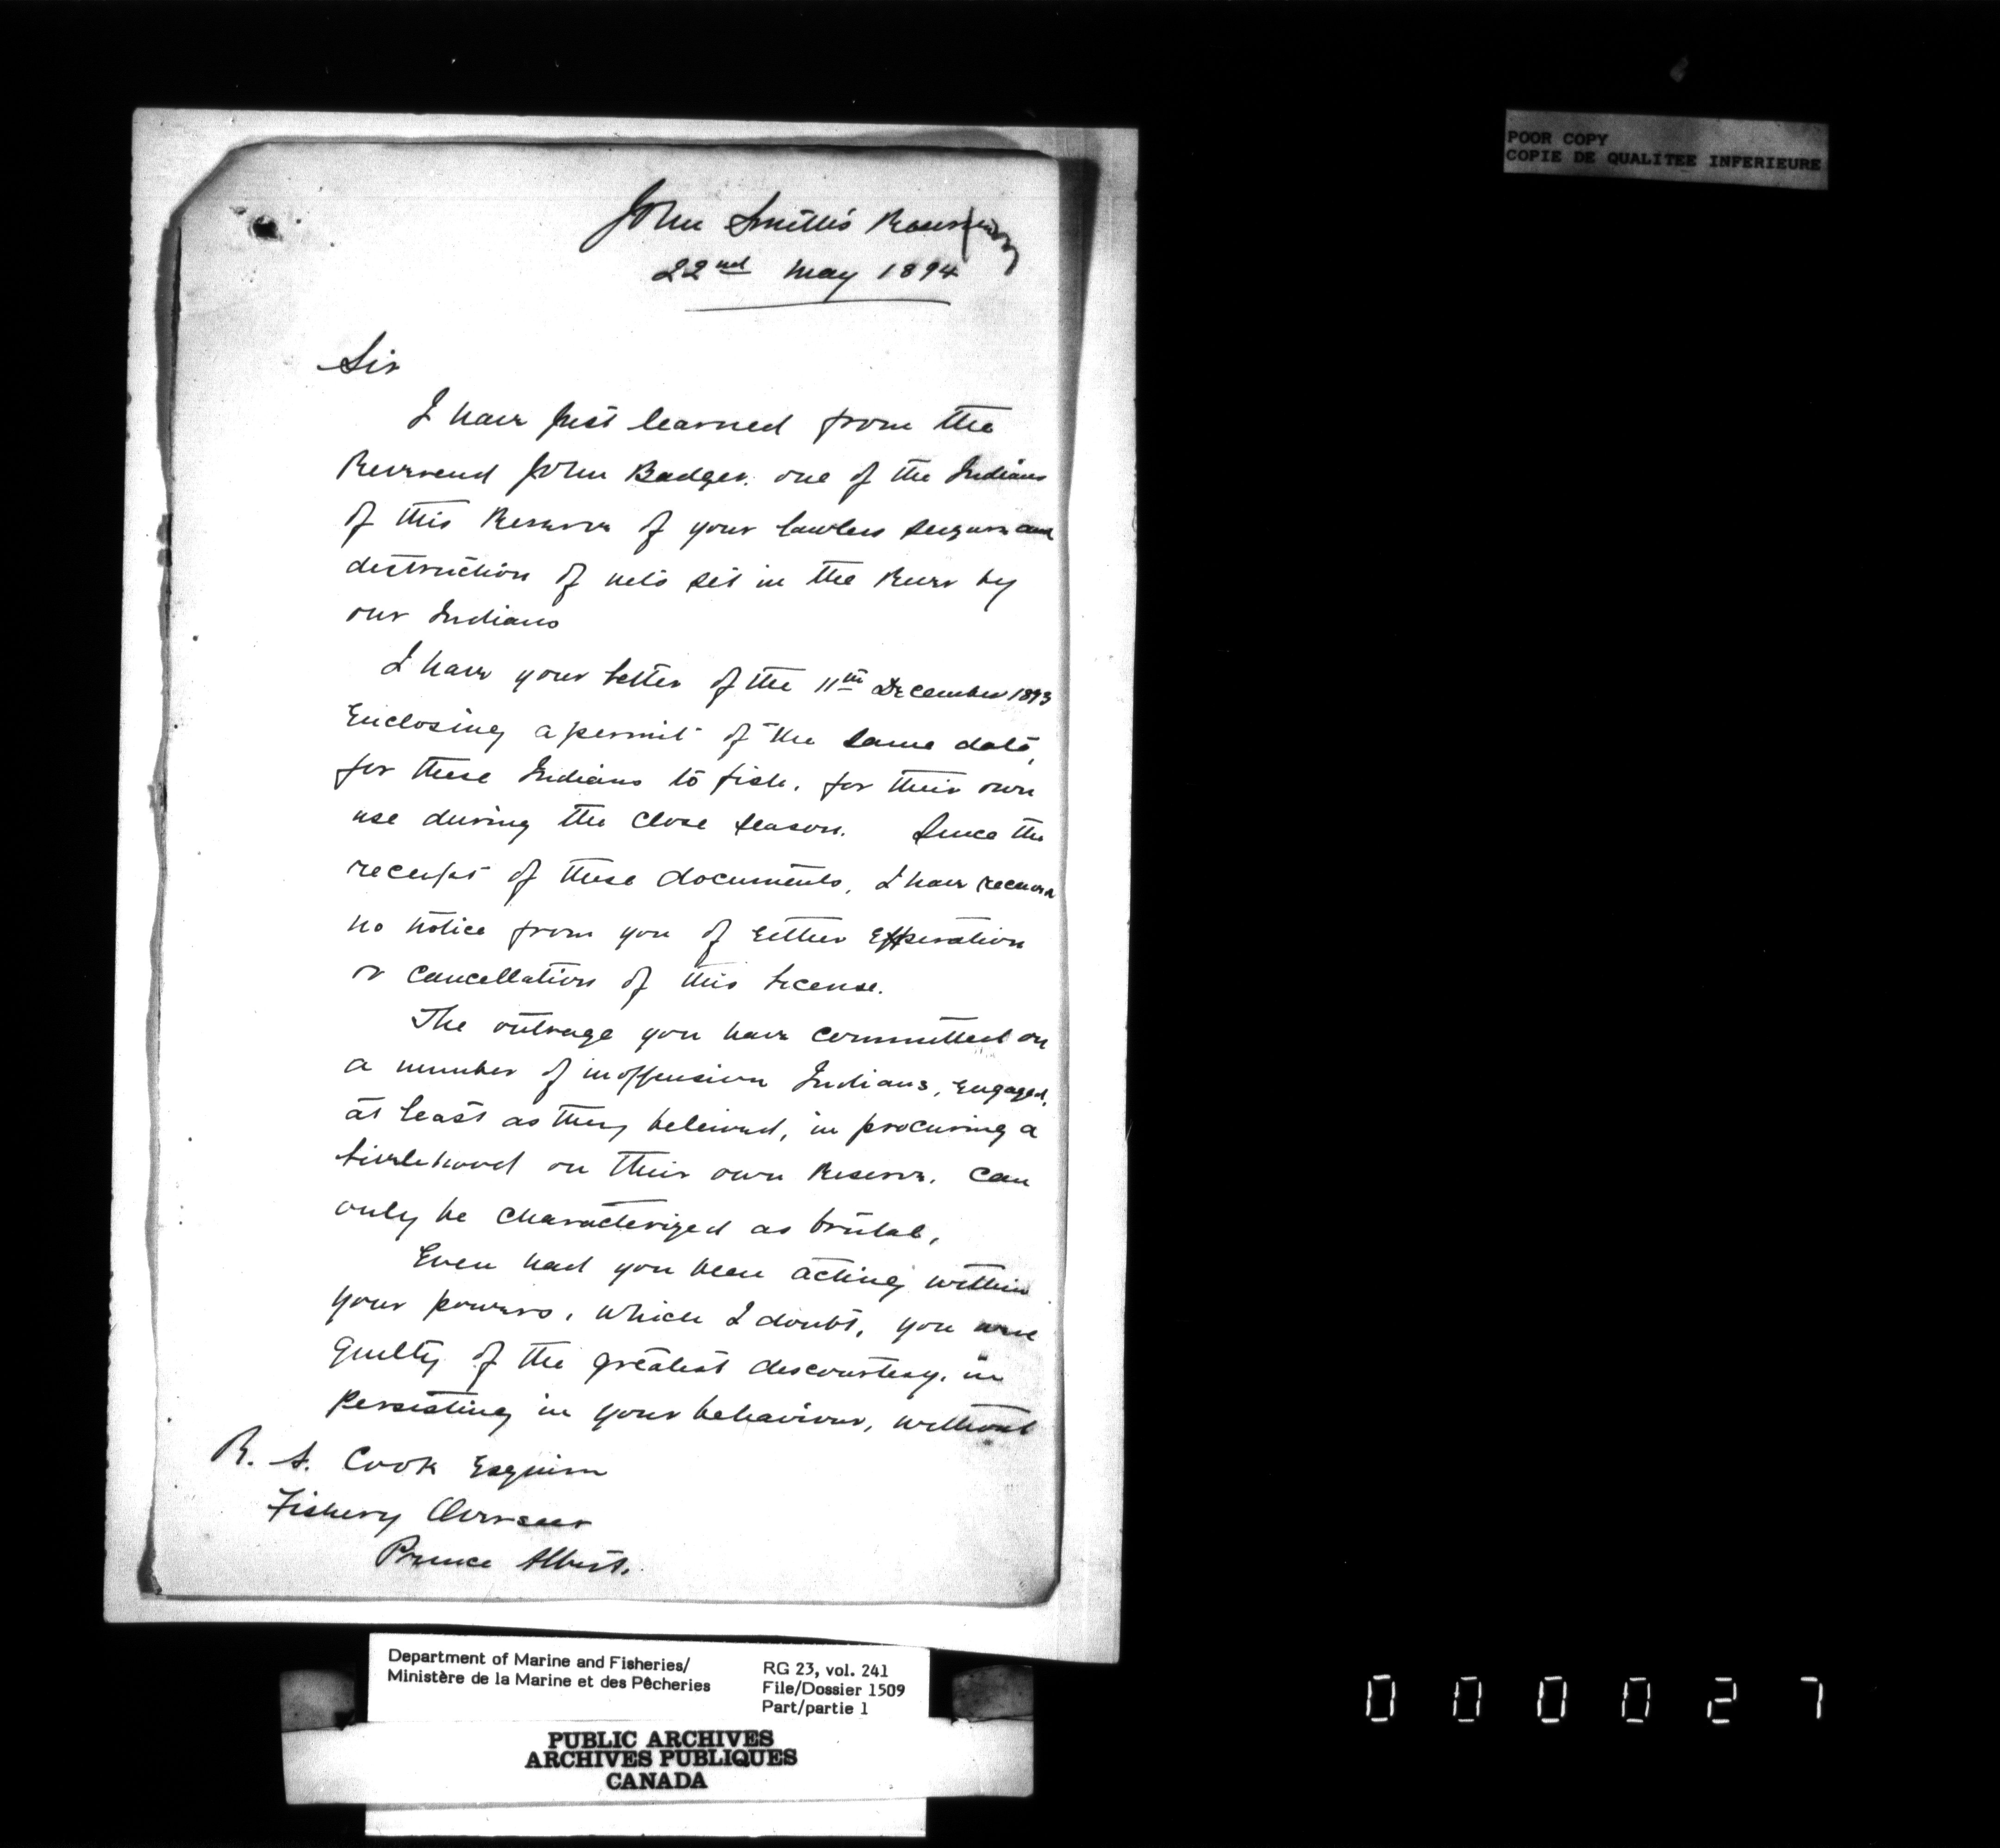 POOR COPY
COPIE DE QUALITEE INFERIEURE
John Smith's Reservation
22nd May 1894
Sir
I have just learned from the
Reverend John Badger, one of the Indians
of this Reserve of your lawless seizure and
destruction of nets set in the River by
our Indians
I have your letter of the 11th December 1893
Enclosing a permit of the same date,
for these Indians to fish, for their own
use during the close season. Since the
receipt of these documents, I have received
no notice from you of either Expiration
or cancellation of this license.
The outrage you have committed on
a number of inoffensive Indians, engaged,
at least as they beleived, in procuring a
livelihood on their own Reserve, can
only be characterized as brutal,
Even had you been acting within
your powers, which I doubt, you were
guilty of the greatest discourtesy, in
persisting in your behaviour, without
R. S. Cook Esquire
Fishery Overseer
Prince Albert.
Department of Marine and Fisheries/
Ministère de la Marine et des Pêcheries
RG 23, vol. 241
File/Dossier 1509
Part/partie 1
PUBLIC ARCHIVES
ARCHIVES PUBLIQUES
CANADA
000027